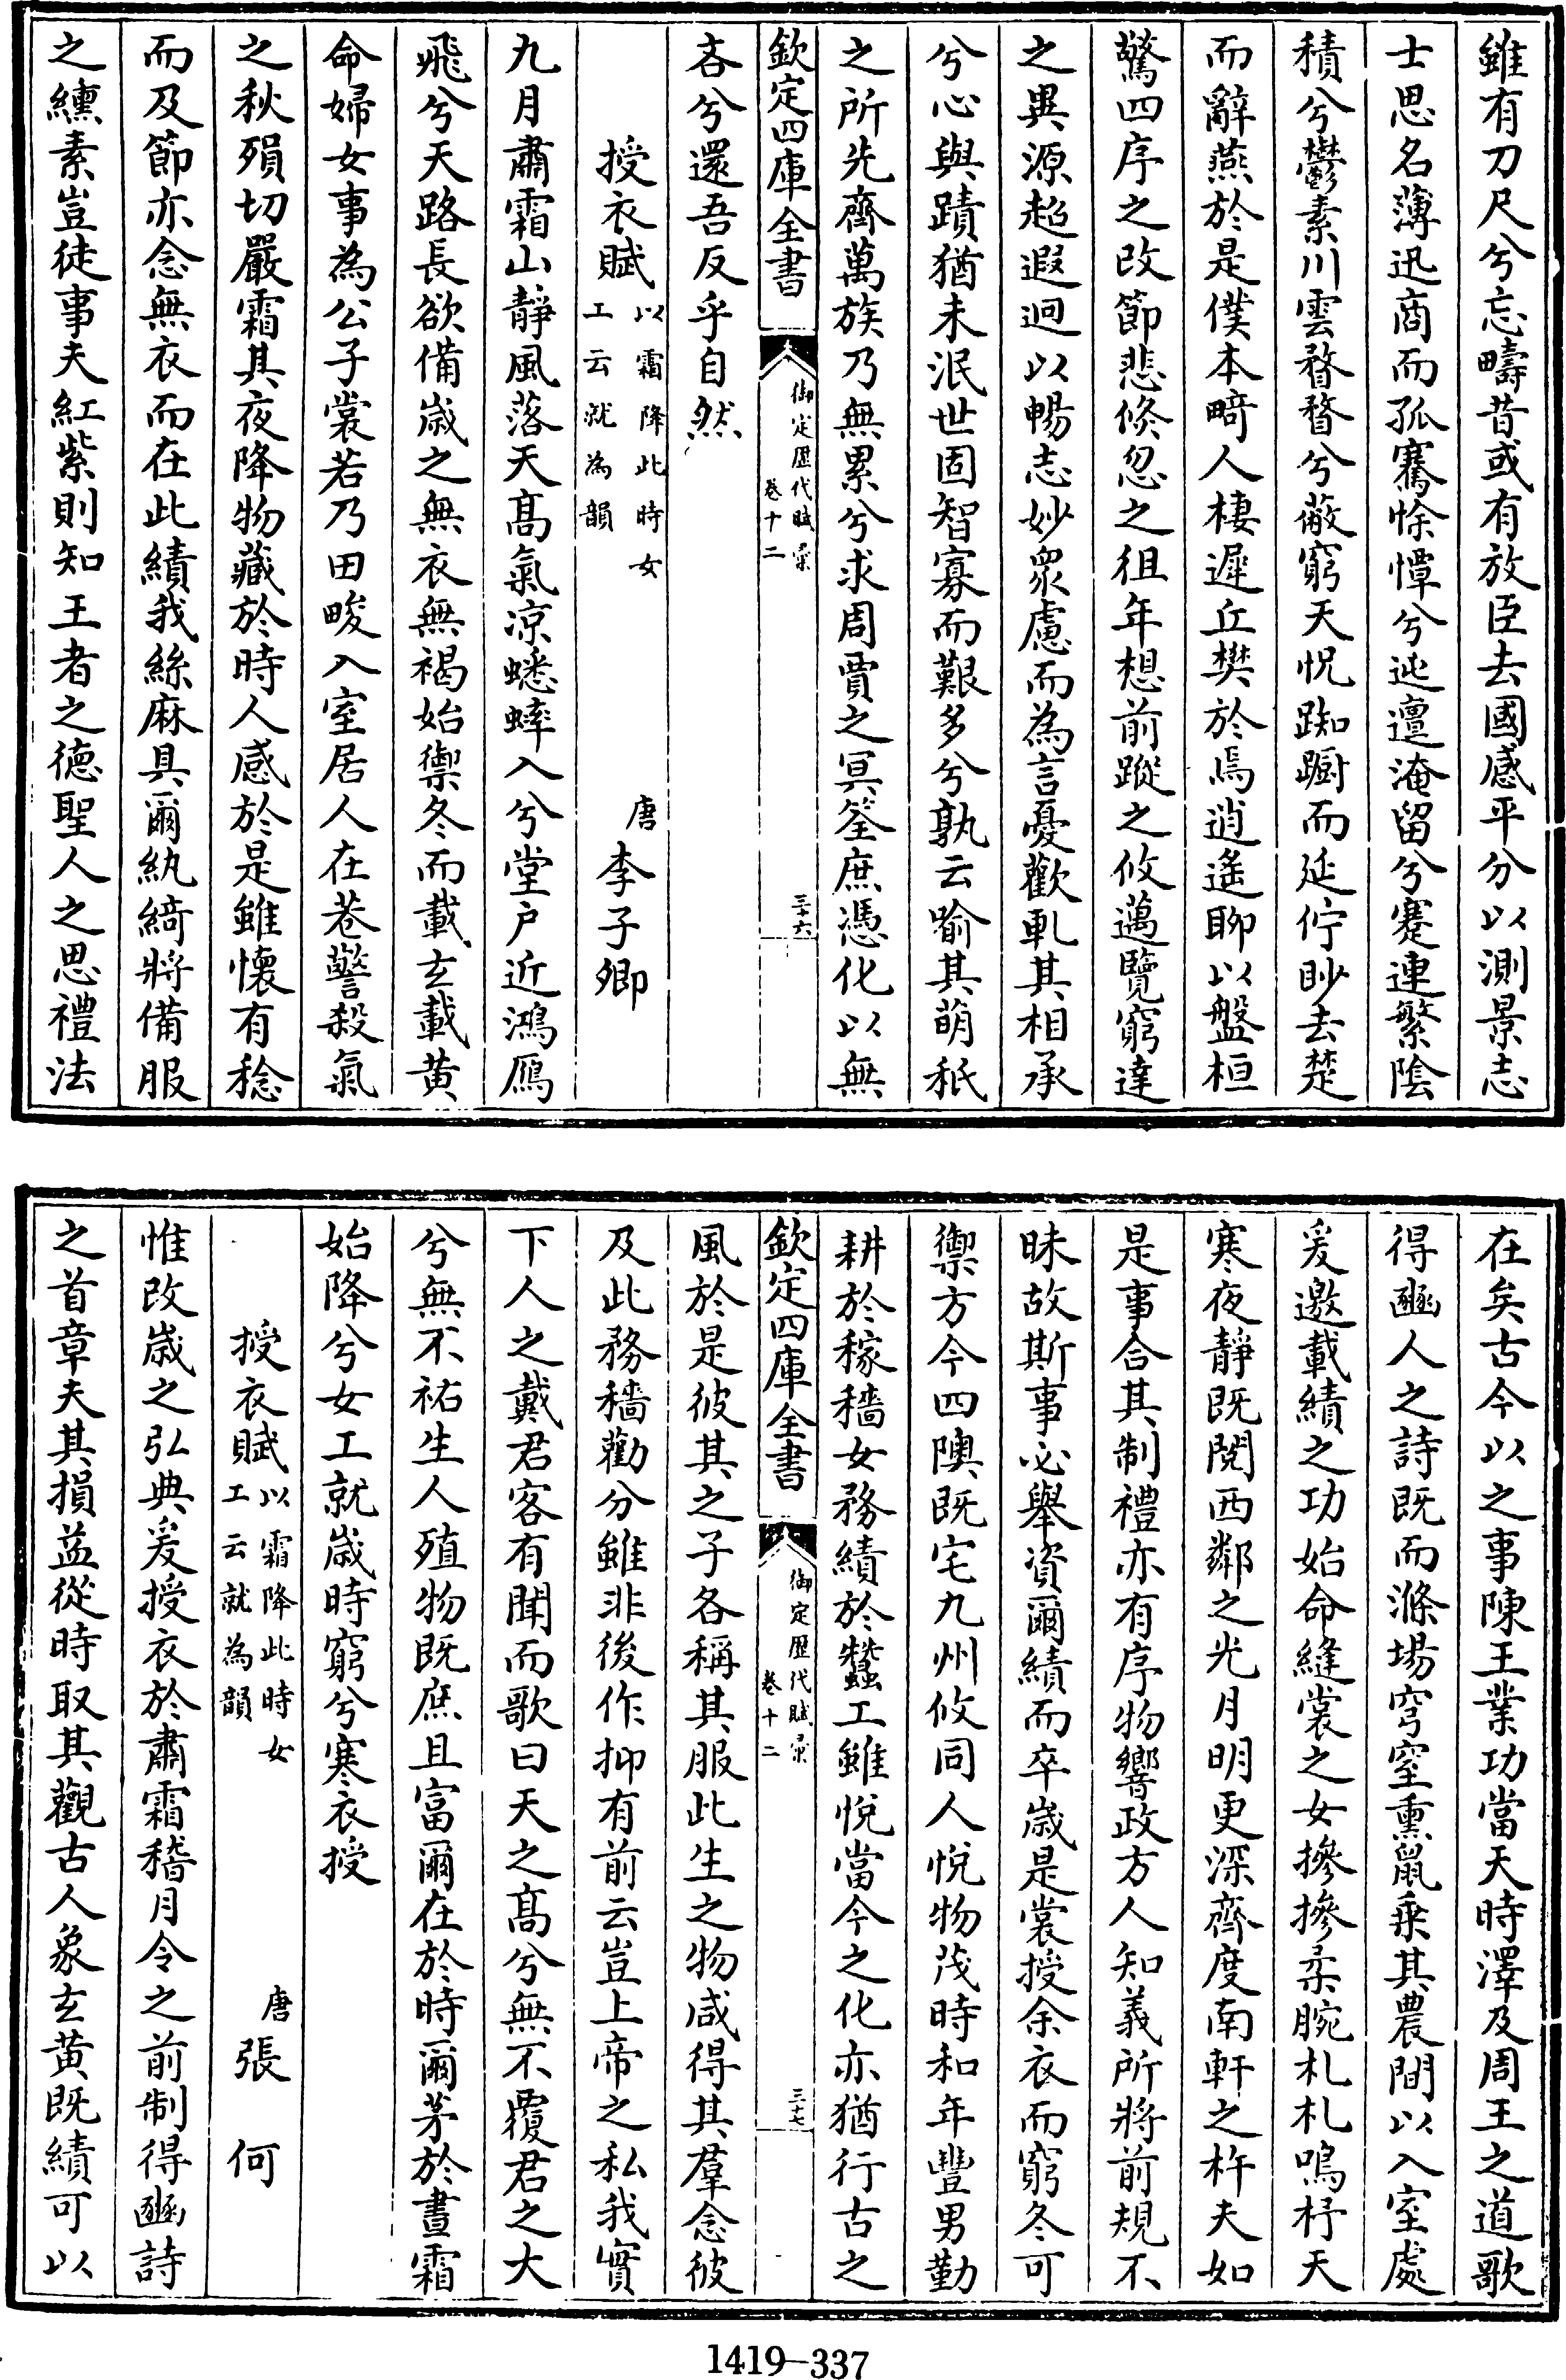 雖有刀尺兮忘疇昔或有放臣去國感平分以測景志
士思名薄迅商而孤騫悇憛兮迍邅淹留兮蹇連繁陰
積兮鬱素川雲瞀瞀兮蔽窮天怳踟蹰而延佇眇去楚
而辭燕於是僕本畸人棲遲丘樊於焉逍遙聊以盤桓
驚四序之改節悲倏忽之徂年想前蹤之攸邁覽窮達
之異源超遐迥以暢志妙衆慮而為言憂歡軋其相承
兮心與蹟猶未泯世固智寡而艱多兮孰云喻其萌秖
之所先齊萬族乃無累兮求周賈之冥筌庶憑化以無
欽定四庫全書
御定歷代賦彙
卷十二
三十六
吝兮還吾反乎自然
授衣賦以霜降此時女
工云就為韻
唐李子卿
九月肅霜山靜風落天髙氣凉蟋蟀入兮堂户近鴻鴈
飛兮天路長欲備嵗之無衣無褐始禦冬而載玄載黄
命婦女事為公子裳若乃田畯入室居人在巷警殺氣
之秋殞切嚴霜其夜降物藏於時人感於是雖懷有稔
而及節亦念無衣而在此績我絲麻具爾紈綺將備服
之纁素豈徒事夫紅紫則知王者之德聖人之思禮法
在矣古今以之事陳王業功當天時澤及周王之道歌
得豳人之詩既而滌場穹窒熏鼠乗其農間以入室處
爰邀載績之功始命縫裳之女摻摻柔腕札札鳴杼天
寒夜靜既閱西鄰之光月明更深齊度南軒之杵夫如
是事合其制禮亦有序物響政方人知義所將前規不
昧故斯事必舉資爾績而卒嵗是裳授余衣而窮冬可
禦方今四隩既宅九州攸同人悅物茂時和年豐男勤
耕於稼穡女務績於蠶工雖悅當今之化亦猶行古之
欽定四庫全書
御定歷代賦彙
卷十二
三十七
風於是彼其之子各稱其服此生之物咸得其羣念彼
及此務穡勸分雖非後作抑有前云豈上帝之私我實
下人之戴君客有聞而歌曰天之髙兮無不覆君之大
兮無不祐生人殖物既庶且富爾在於時爾茅於晝霜
始降兮女工就嵗時窮兮寒衣授
授衣賦以霜降此時女
工云就為韻
唐張何
惟改嵗之弘典爰授衣於肅霜稽月令之前制得豳詩
之首章夫其損益從時取其觀古人象玄黄既績可以
1419-337